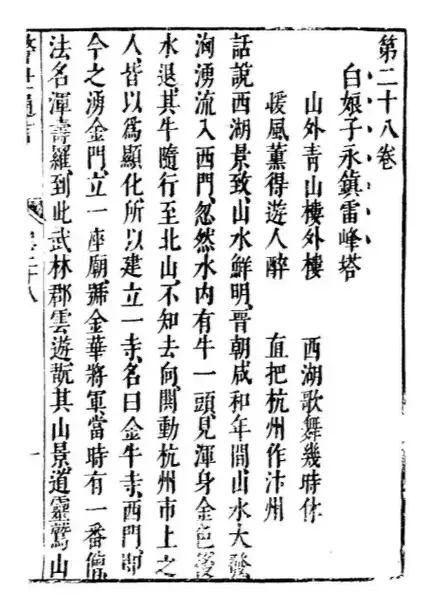 第二十八卷
白娘子永鎮雷峰塔
山外青山樓外樓　西湖歌舞幾時休
煖風薰得遊人醉　直把杭州作汴州
話說西湖景致、山水鮮明、晉朝咸和年間、山水大發
洶湧流入西門、忽然水內有牛一頭、見渾身金色、後
水退、其牛隨行至北山、不知去向、閧動杭州市上之
人、皆以爲顯化、所以建立一寺、名曰金牛寺、西門、卽
今之湧金門、立一座廟、號金華將軍、當時有一番僧
法名渾壽羅、到此武林郡雲遊、翫其山景、道靈鷲山
二十八
一